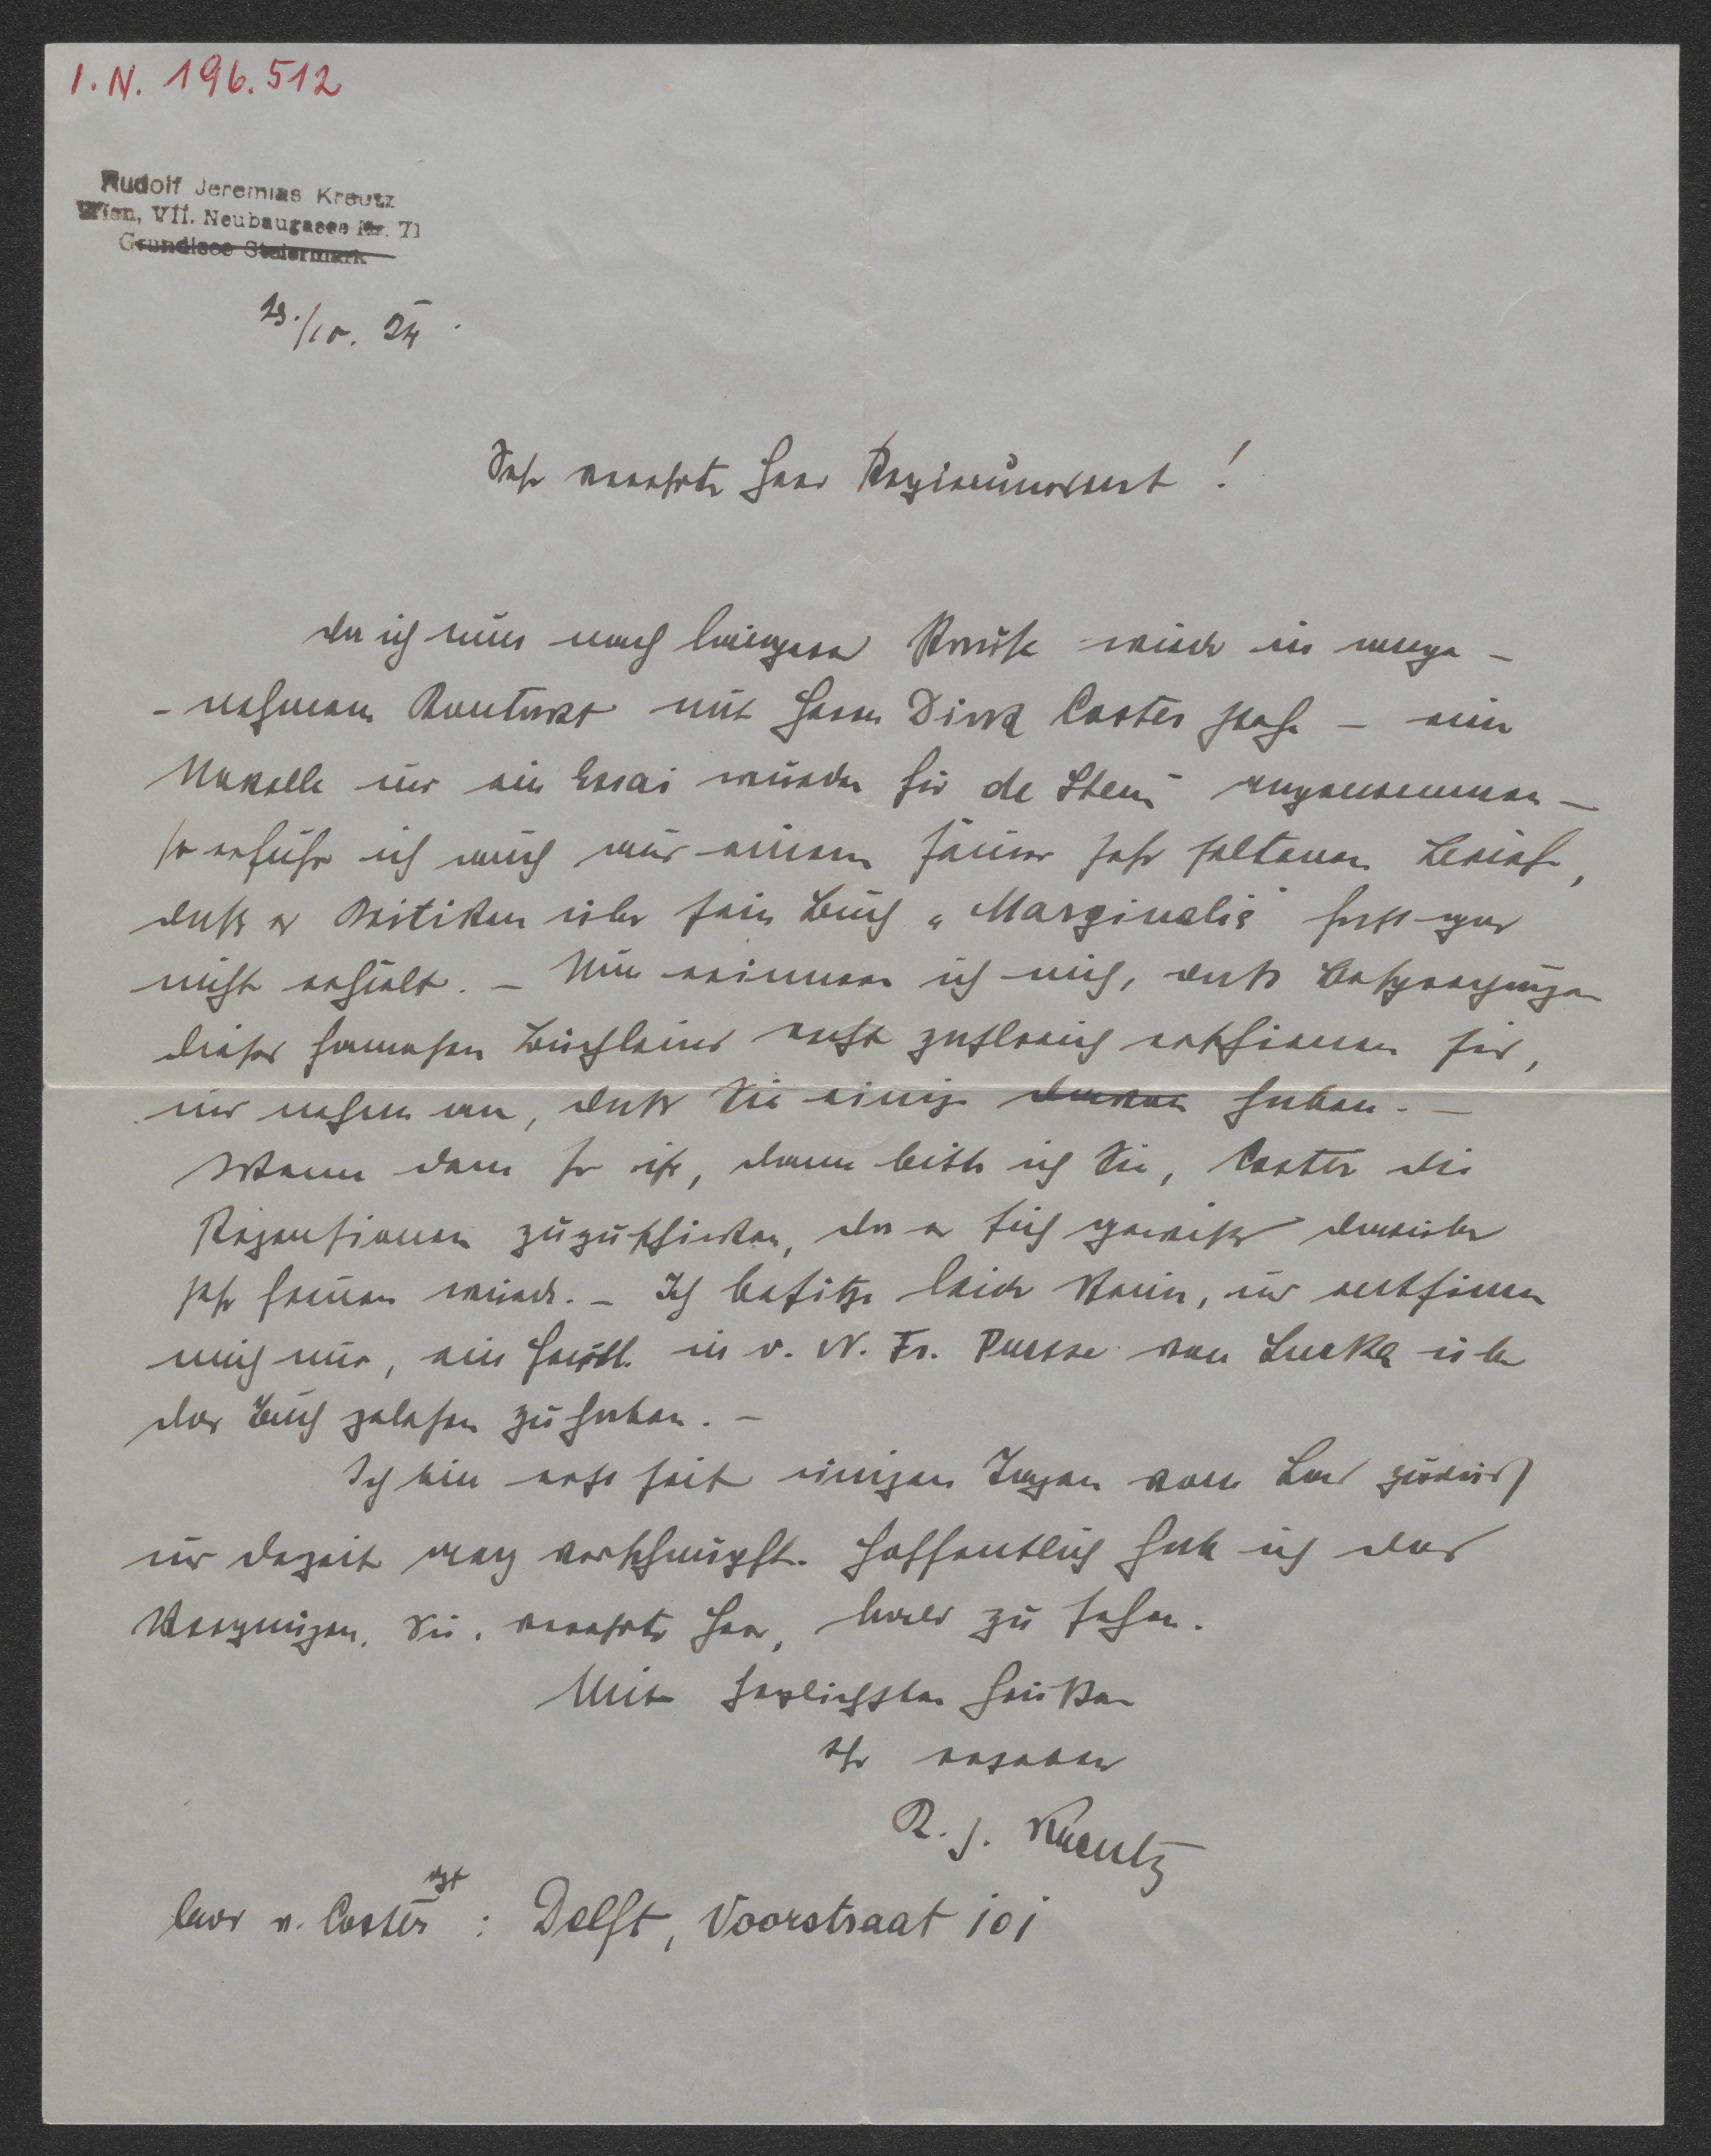 I. N. 196.512
Rudolf Jeremias Kreutz
Wien, VII. Neubaugasse Nr. 71
Grundlsee Steiermark
23./10. 24.
Sehr verehrter Herr Regierungsrat!
da ich nun nach längerer Pause wieder in ange-
-nehmem Kontakt mit Herrn Dirk Coster stehe – eine
Novelle und ein Essai wurden für de Stem angenommen –
so erfuhr ich auch aus einem seiner sehr seltenen Briefe,
daß er Kritiken über sein Buch „Marginalia" fast gar
nicht erhielt. – Nun erinnere ich mich, daß Besprechungen
dieses famosen Büchleins recht zahlreich erschienen sind,
und nehme an, daß Sie einige davon haben. –
Wenn dem so ist, dann bitte ich Sie, Coster die
Rezensionen zuzuschicken, da er sich gewiß darüber
sehr freuen würde. – Ich besitze leider keine, und entsinne
mich nur, ein Feuill. in d. N. Fr. Presse von Lucka über
das Buch gelesen zu haben. –
Ich bin erst seit einigen Tagen vom Land zurück
und derzeit arg verschnupft. Hoffentlich hab ich das
Vergnügen, Sie, verehrter Herr, bald zu sehen.
Mit herzlichsten Grüßen
Ihr ergebener
R. J. Kreutz
v. Coster : Delft, Voorstraat 101